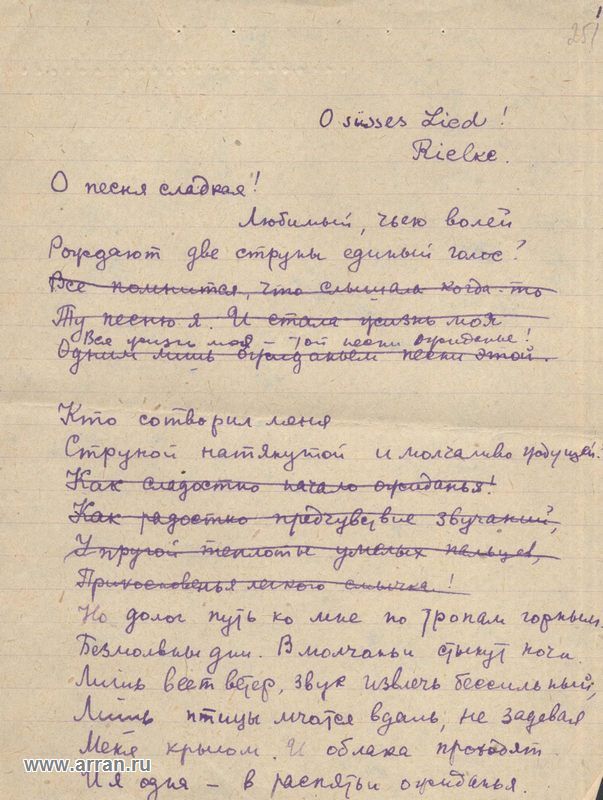 251
O süsses Lied!
Rielke.
О песня сладкая!
Любимый, чьею волей
Рождают две струны единый голос?
Все помнится, что слышала когда-то
Ту песню я. И стала жизнь моя
Вся жизнь моя – той песни ожиданье!
Одним лишь ожиданьем песни этой.
Кто сотворил меня
Струной натянутой и молчаливо ждущей.
Как сладостно начало ожиданья!
Как радостно предчувствие звучаний,
Упругой теплоты умелых пальцев,
Прикосновенья легкого смычка!
Но долог путь ко мне по тропам горным.
Безмолвны дни. В молчаньи стынут ночи.
Лишь веет ветер, звук извлечь бессильный,
Лишь птицы мчатся вдаль, не задевая
Меня крылом. И облака проходят.
И я одна – в распятьи ожиданья.
www.arran.ru